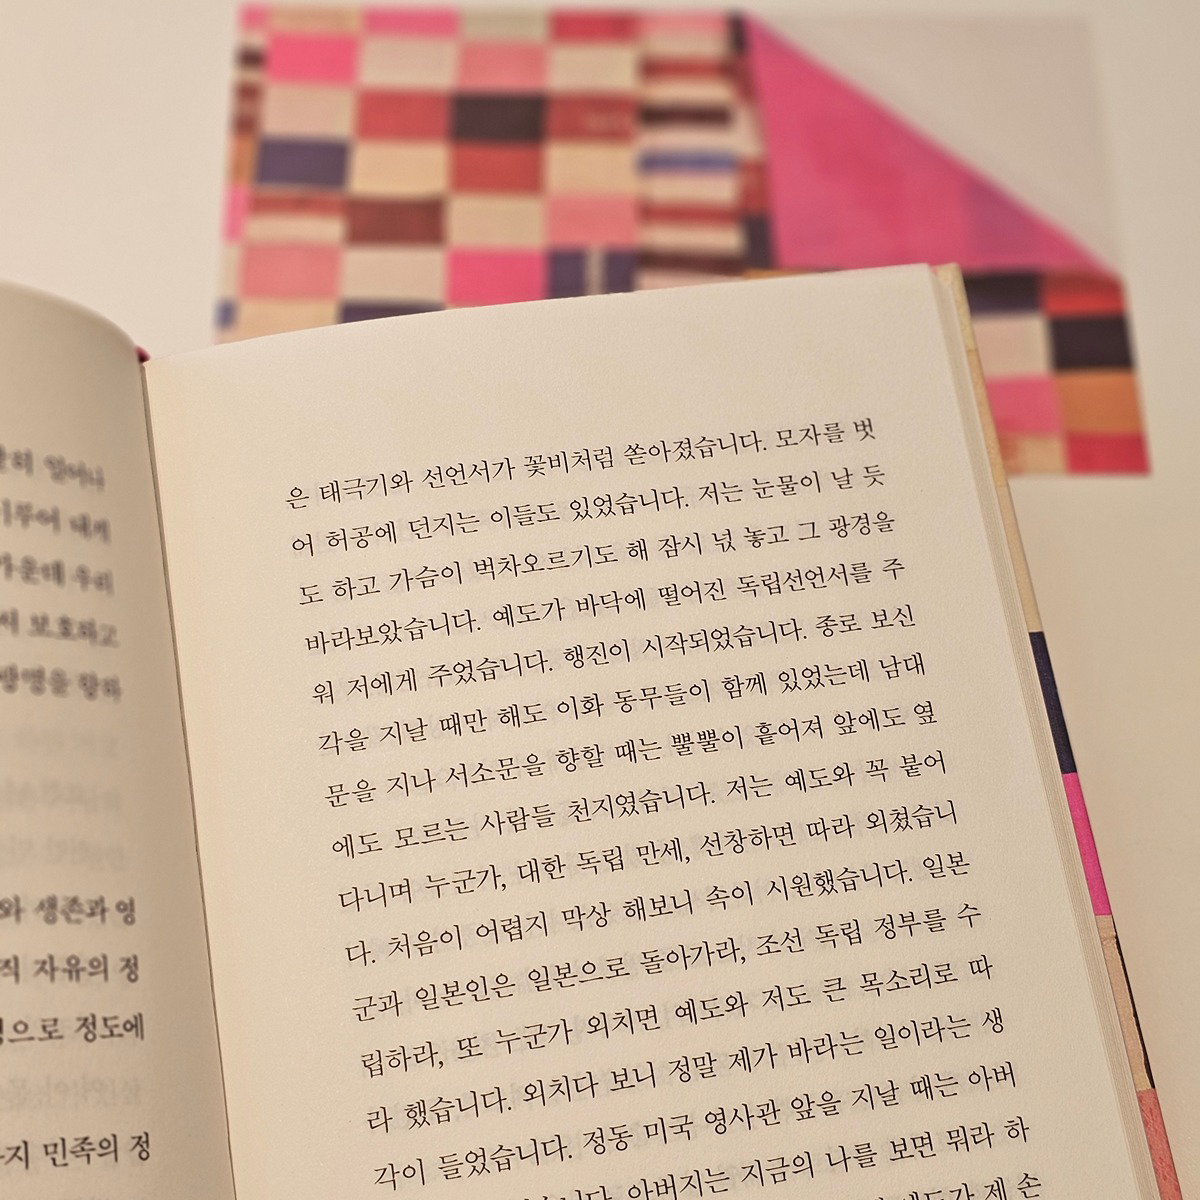 일어나
내키
우리
보호하고
광명을 향하
와 생존과 영
직 자유의 정
으로 정도에
민족의 정
은 태극기와 선언서가 꽃비처럼 쏟아졌습니다. 모자를 벗
어 허공에 던지는 이들도 있었습니다. 저는 눈물이 날 듯
도 하고 가슴이 벅차오르기도 해 잠시 넋 놓고 그 광경을
바라보았습니다. 예도가 바닥에 떨어진 독립선언서를 주
워 저에게 주었습니다. 행진이 시작되었습니다. 종로 보신
각을 지날 때만 해도 이화 동무들이 함께 있었는데 남대
문을 지나 서소문을 향할 때는 뿔뿔이 흩어져 앞에도 옆
에도 모르는 사람들 천지였습니다. 저는 예도와 꼭 붙어
다니며 누군가, 대한 독립 만세, 선창하면 따라 외쳤습니
다. 처음이 어렵지 막상 해보니 속이 시원했습니다. 일본
군과 일본인은 일본으로 돌아가라, 조선 독립 정부를 수
립하라, 또 누군가 외치면 예도와 저도 큰 목소리로 따
라 했습니다. 외치다 보니 정말 제가 바라는 일이라는 생
각이 들었습니다. 정동 미국 영사관 앞을 지날 때는 아버
아버지는 지금의 나를 보면 뭐라 하
예도가 제 손